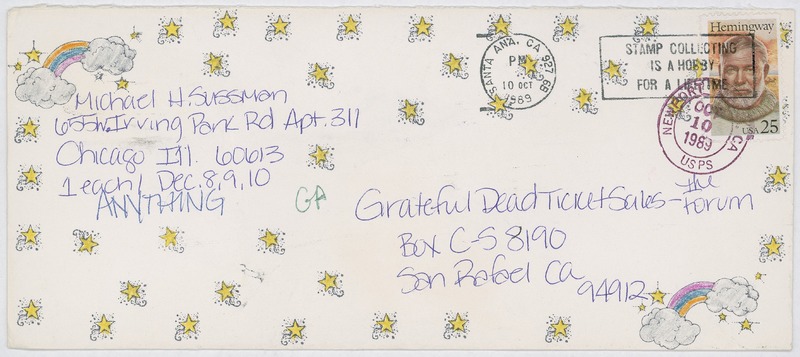 Michael H. Sussman
655 W. Irving Park Rd Apt. 311
Chicago Ill. 60613
1 each! Dec. 8, 9, 10
ANYTHING
GA
SANTA ANA, CA 927 6B
PM
10 OCT
1989
STAMP COLLECTING
IS A HOBBY
FOR A LIFETIME
Hemingway
USA 25
OCT
10
1989
CA
USPS
Grateful Dead Ticket Sales - the
Forum
Box C-S 8190
San Rafael Ca
94912